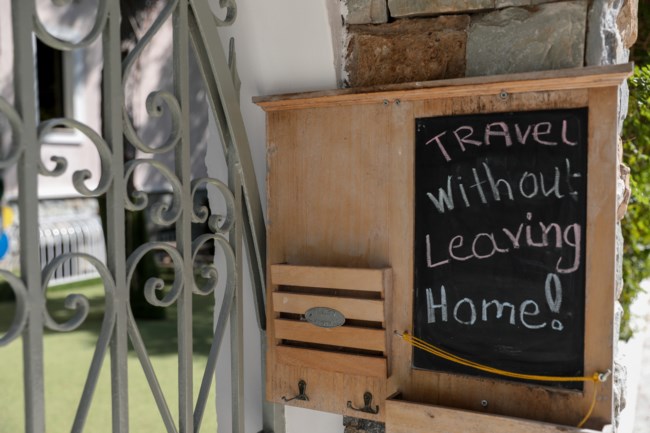 TRAVEL
Without
Leaving
Home!